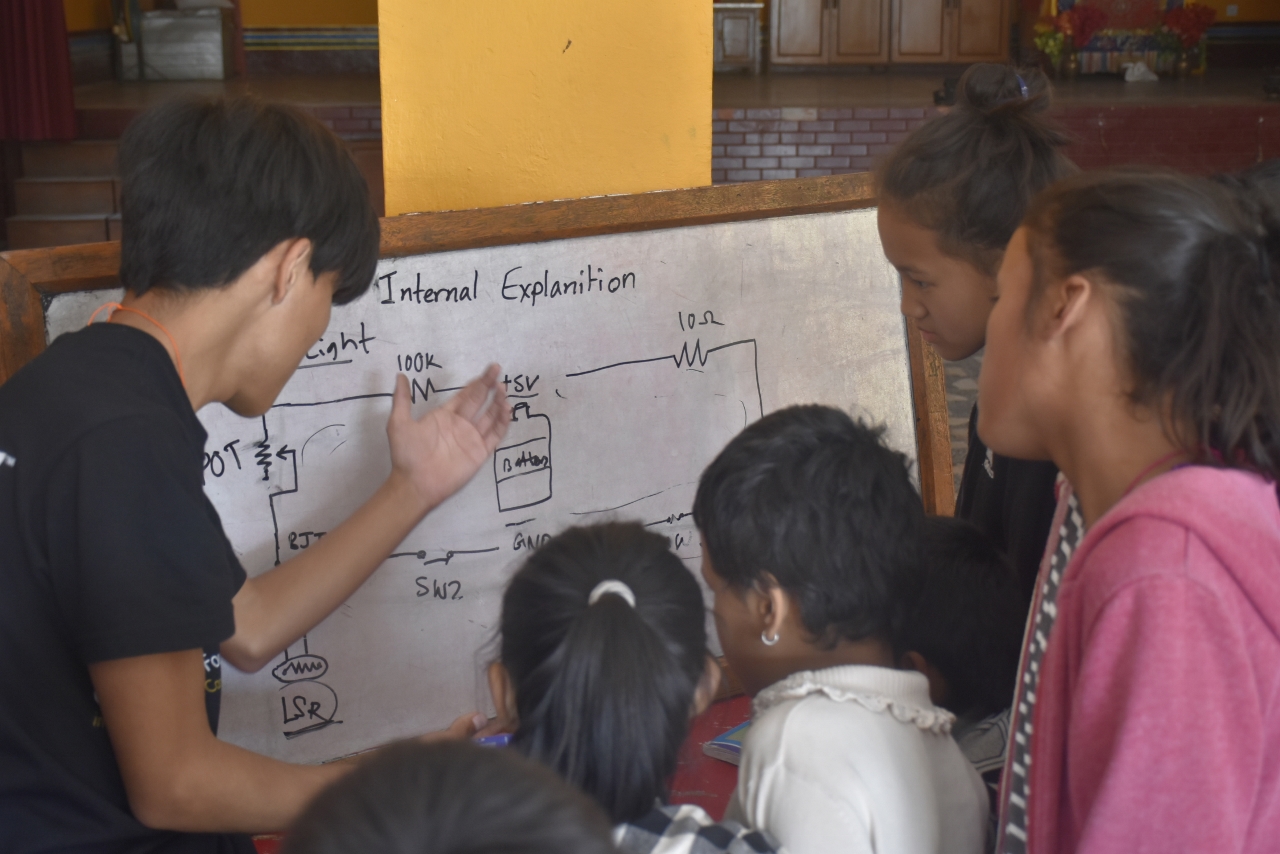 Internal Explanition
Light
10Ω
100K
+5V
POT
Battery
BJT
GND
SW2
LSR